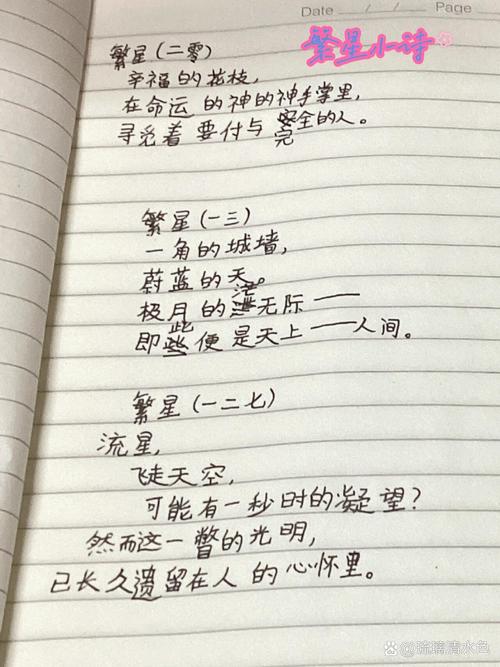 Date / / Page
繁星小诗
繁星(二零)
幸福的花枝,
在命运的神的神手掌里,
寻觅着要付与完全的人。
繁星(一三)
一角的城墙,
蔚蓝的天。
极月的茫无际——
即此便是天上——人间。
繁星(一二七)
流星,
飞走天空,
可能有一秒时的凝望?
然而这一瞥的光明,
已长久遗留在人的心怀里。
@琉璃清水色